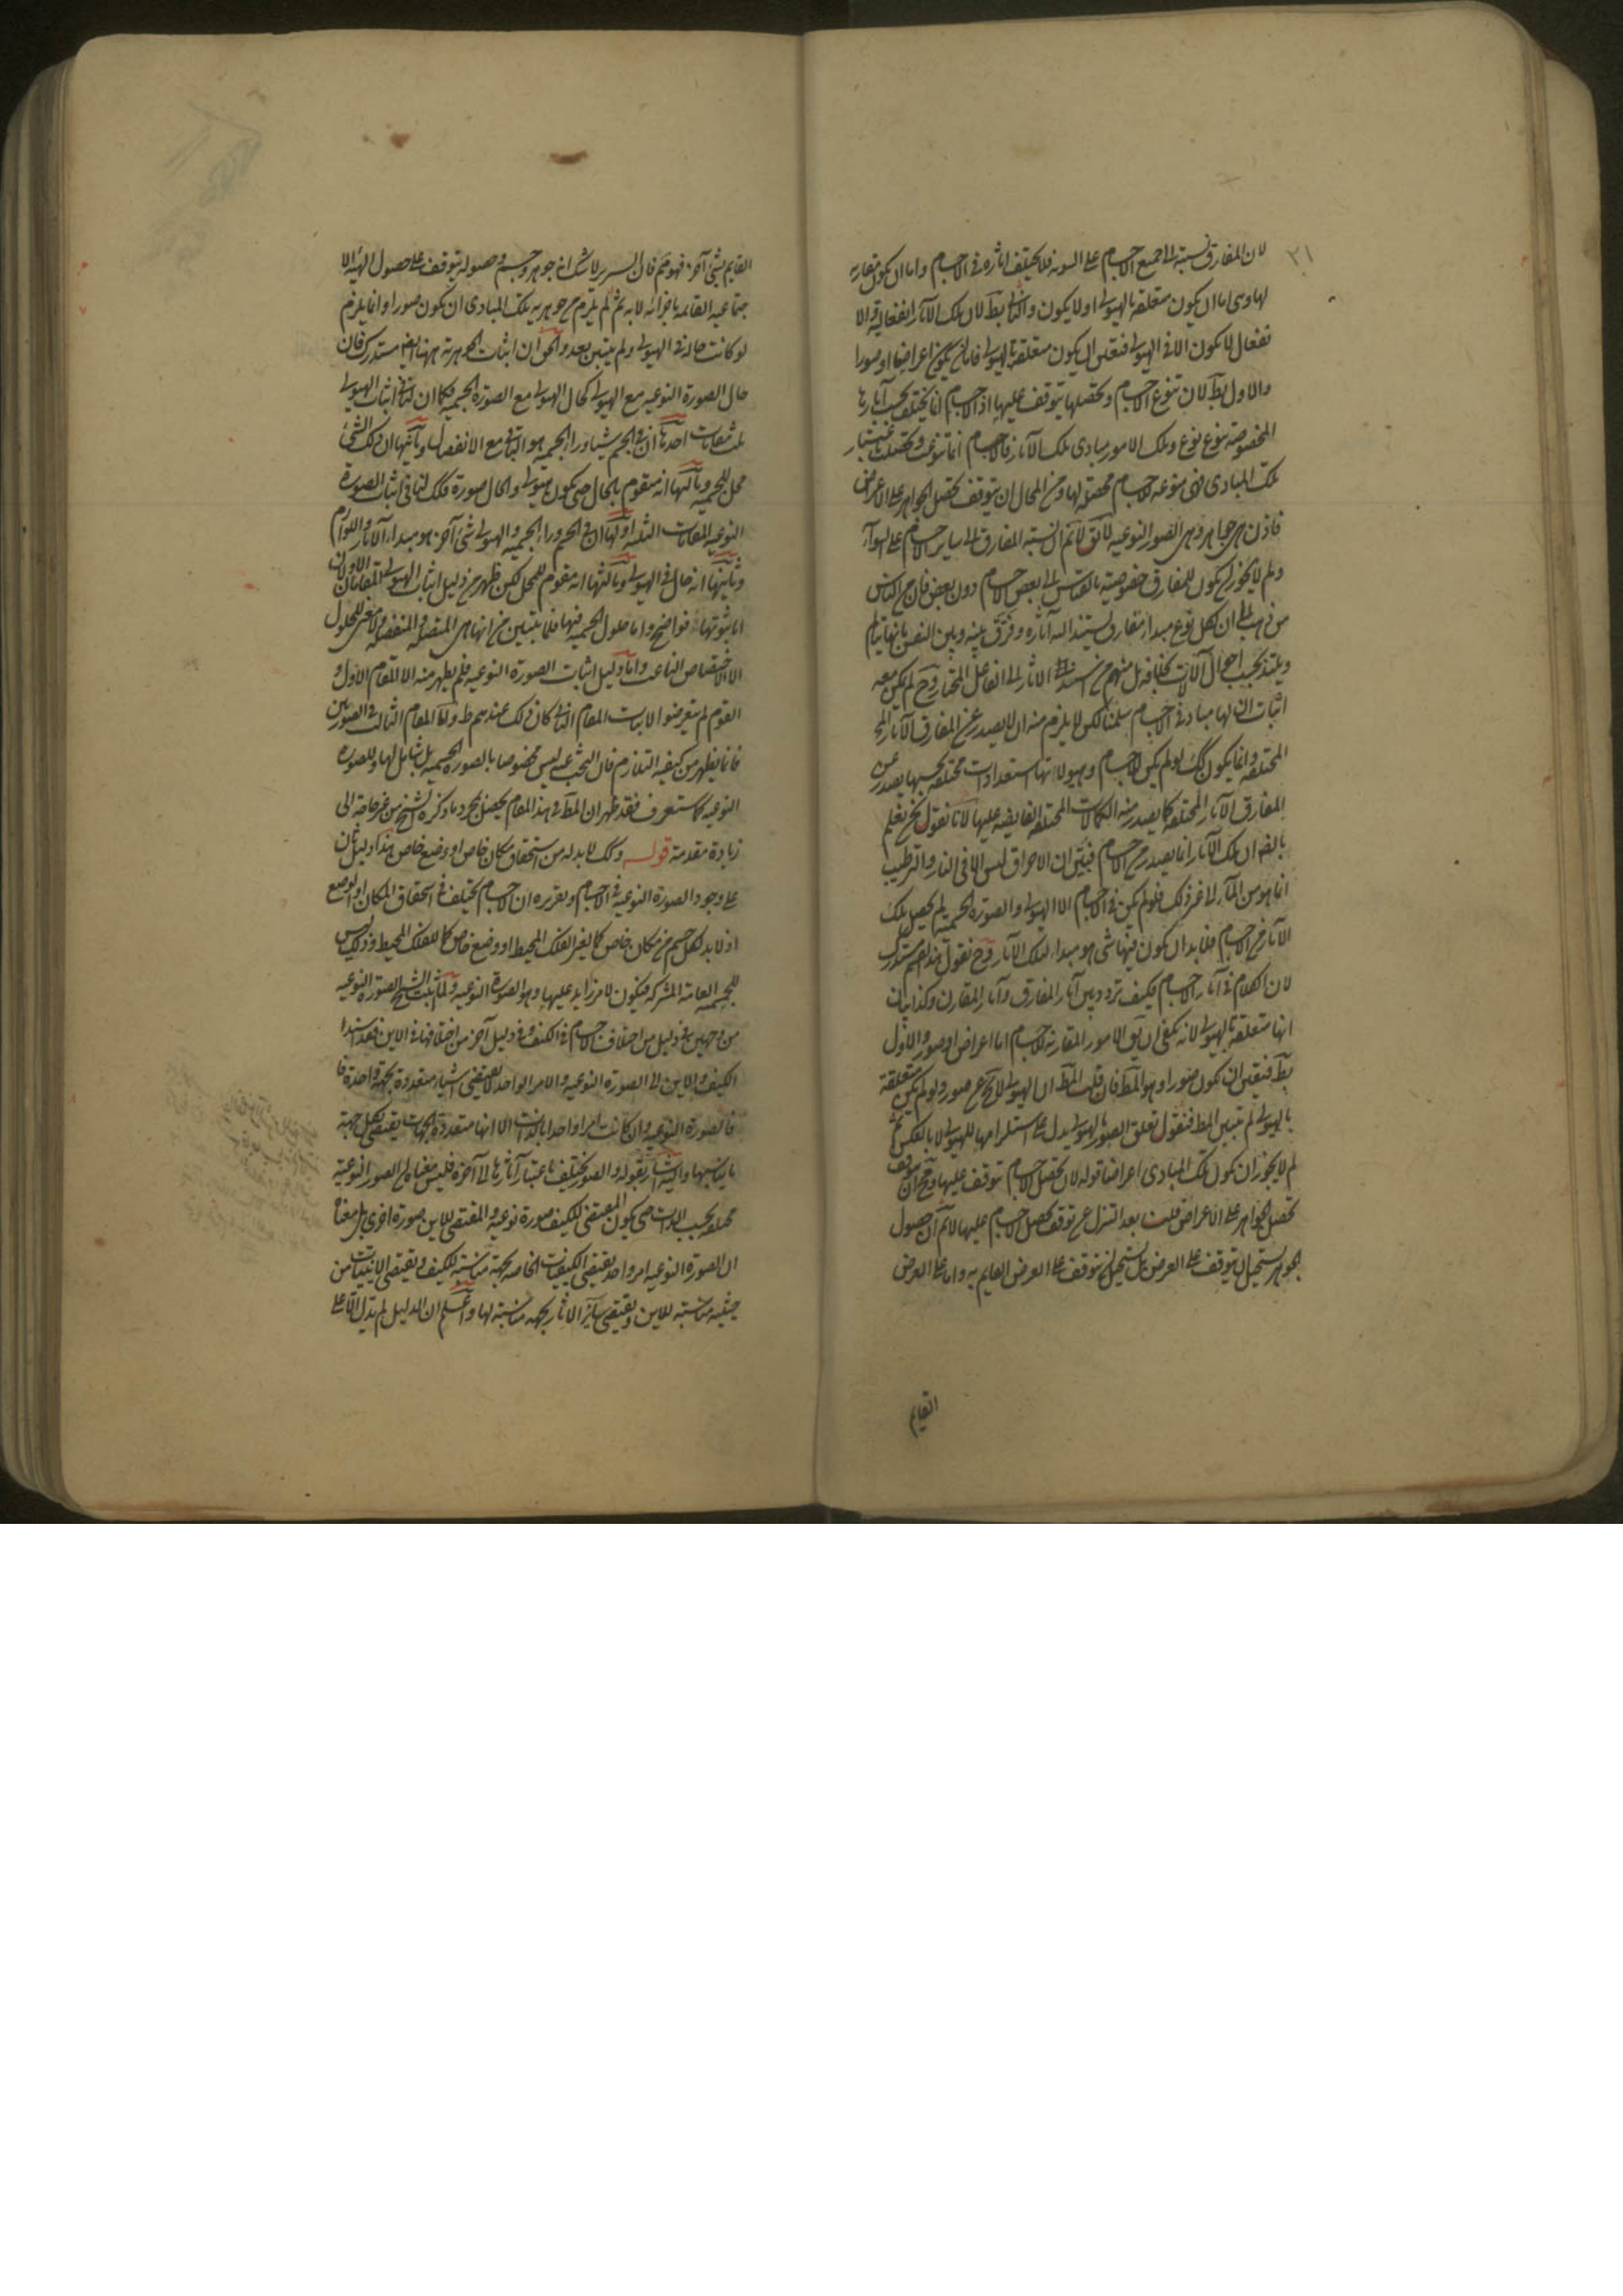 ٢١
لان المفارق نسبته الى جميع الاجسام على السوية فلا يختلف اثاره فى الاجسام واما ان يكون مقارنة
لها وهى اما ان يكون متعلقة بالهيولى او لا يكون والثانى بط لان تلك الآثار انفعالية والا
نفعال لا يكون الا فى الهيولى فتعين ان يكون متعلقة بالهيولى فاما ان يكون اعراضا او صورا
والاول بط لان تنوع الاجسام وتحصلها يتوقف عليها اذ الاجسام انما يختلف بحسب آثارها
المخصوصة بنوع نوع وتلك الامور مبادى تلك الآثار فالاجسام انما تنوعت وتحصلت باعتبار
تلك المبادى فهى منوعة للاجسام محصلة لها ومن المحال ان يتوقف تحصل الجواهر على الاعراض
فاذن هى جواهر وهى الصور النوعية لا يق لانم ان نسبة المفارق الى سائر الاجسام على السواء
ولم لا يجوز ان يكون للمفارق خصوصية بالقياس الى بعض الاجسام دون بعض فان من الناس
من ذهب الى ان لكل نوع مبدا مفارق يستند اليه آثاره وفرق بينه وبين النفس بانها يتالم
ويلتذ بحسب احوال الآلات بخلافه بل منهم من اسند الاثار الى الفاعل المختار وح لم يكن معه
اثبات ان لها مبادى فى الاجسام سلمنا لكن لا يلزم منه ان لا يصدر عن المفارق الآثار
المختلفة وانما يكون كك لو لم يكن للاجسام وهيولاتها استعدادات مختلفة بحسبها يصدر عن
المفارق الآثار المختلفة كما يصدر منه الكمالات المختلفة الفايضة عليها لانا نقول نحن نعلم
بالضرورة ان تلك الآثار انما يصدر من الاجسام فتبين ان الاحراق ليس الا فى النار والترطيب
انما هو من الماء الى غير ذلك فلو لم يكن فى الاجسام الا الهيولى والصورة الجسمية لم يحصل تلك
الآثار من الاجسام فلا بد ان يكون فيها شئ هو مبدا لتلك الآثار وح نقول هذا القسم مستدرك
لان الكلام فى آثار الاجسام فكيف تردد بين آثار المفارق وآثار المقارن وكذا بيان
انها متعلقة بالهيولى لانه يكفى ان يق الامور المقارنة للاجسام اما اعراض او صور والاول
بط فتعين ان يكون صورا وهو المط فان قلت المط ان الهيولى لا تخ عن صور ولو لم يكن متعلقة
بالهيولى لم يتبين المط فنقول تعلق الصور بالهيولى يدل على استلزامها للهيولى لا بالعكس ثم
لم لا يجوز ان يكون تلك المبادى اعراضا قوله لان تحصل الاجسام يتوقف عليها ومح ان يتوقف
تحصل الجواهر على الاعراض قلت بعد التنزل عن توقف تحصل الاجسام عليها لانم ان حصول
الجوهر يستحيل ان يتوقف على العرض بل يستحيل ان يتوقف على العرض القايم به واما على العرض
القايم
القايم بشئ آخر فهو مم فان السرير لا شك انه جوهر وجسم وحصوله يتوقف على حصول الهيئة الا
جتماعية القائمة باجزائه لا به ثم لم يلزم من جوهرية تلك المبادى ان يكون صورا وانما يلزم
لو كانت حالة فى الهيولى ولم يتبين بعد والحق ان اثبات الجوهرية ههنا ايضا مستدرك فان
حال الصورة النوعية مع الهيولى كحال الهيولى مع الصورة الجسمية فكما ان لنا فى اثبات الهيولى
ثلث مقامات احدها ان فى الجسم شيئا وراء الجسمية هو الباقى مع الانفصال وثانيها ان ذلك الشئ
محل للجسمية وثالثها انه متقوم بالحال حتى يكون هيولى والحال صورة فكك لنا فى اثبات الصورة
النوعية المقامات الثلثة اولها ان فى الجسم وراء الجسمية والهيولى شئ آخر هو مبدا الآثار واللوازم
وثانيها انه حال فى الهيولى وثالثها انه مقوم للمحل لكن ظهر من دليل اثبات الهيولى المقامان الاولان
اما ثبوتها فواضح واما حلول الجسمية فيها فلما يتبين من انها هى المتصلة والمنفصلة ولا معنى للحلول
الا الاختصاص الناعت واما دليل اثبات الصورة النوعية فلم يظهر منه الا المقام الاول و
القوم لم يتعرضوا لاثبات المقام الثانى كان ذلك عندهم ظ واما المقام الثالث فى الصورتين
فانما يظهر من كيفية التلازم فان البحث عنه ليس مخصوصا بالصورة الجسمية بل شامل لها وللصورة
النوعية كما ستعرف فقد ظهر ان المط فى هذا المقام يحصل بمجرد ما ذكره الشيخ من غير حاجة الى
زيادة مقدمة قوله وكك لا بد له من استحقاق مكان خاص او وضع خاص هذا دليل ثان
على وجود الصورة النوعية فى الاجسام وتقريره ان الاجسام يختلف فى استحقاق المكان او الوضع
اذ لا بد لكل جسم من مكان خاص كما لغير الفلك المحيط او وضع خاص كما للفلك المحيط وذلك ليس
للجسمية العامة المشتركة فيكون لامر زايد عليها وهو الصورة النوعية ولما اثبت الشيخ الصورة النوعية
من وجهين فى دليل من اختلاف الاجسام فى الكيف وفى دليل آخر من اختلافها فى الاين فقد اسند
الكيف والاين الى الصورة النوعية والامر الواحد لا يقتضى اشياء متعددة بجهة واحدة فا
فالصورة النوعية وان كانت امرا واحدا بالذات الا انها متعددة الجهات يقتضى بكل جهة
ما يناسبها واليه اشار بقوله والصور يختلف باعتبار آثارها الى آخره فليس معناه ان الصور النوعية
مختلفة بحسب الذات حتى يكون المقتضى للكيف صورة نوعية والمقتضى للاين صورة اخرى بل معناه
ان الصورة النوعية امر واحد يقتضى الكيفيات الخاصة بجهة مناسبة للكيف ويقتضى الاينيات من
حيثية مناسبة للاين ويقتضى سائر الاثار بجهة مناسبة لها واعلم ان الدليل لم يدل الا على